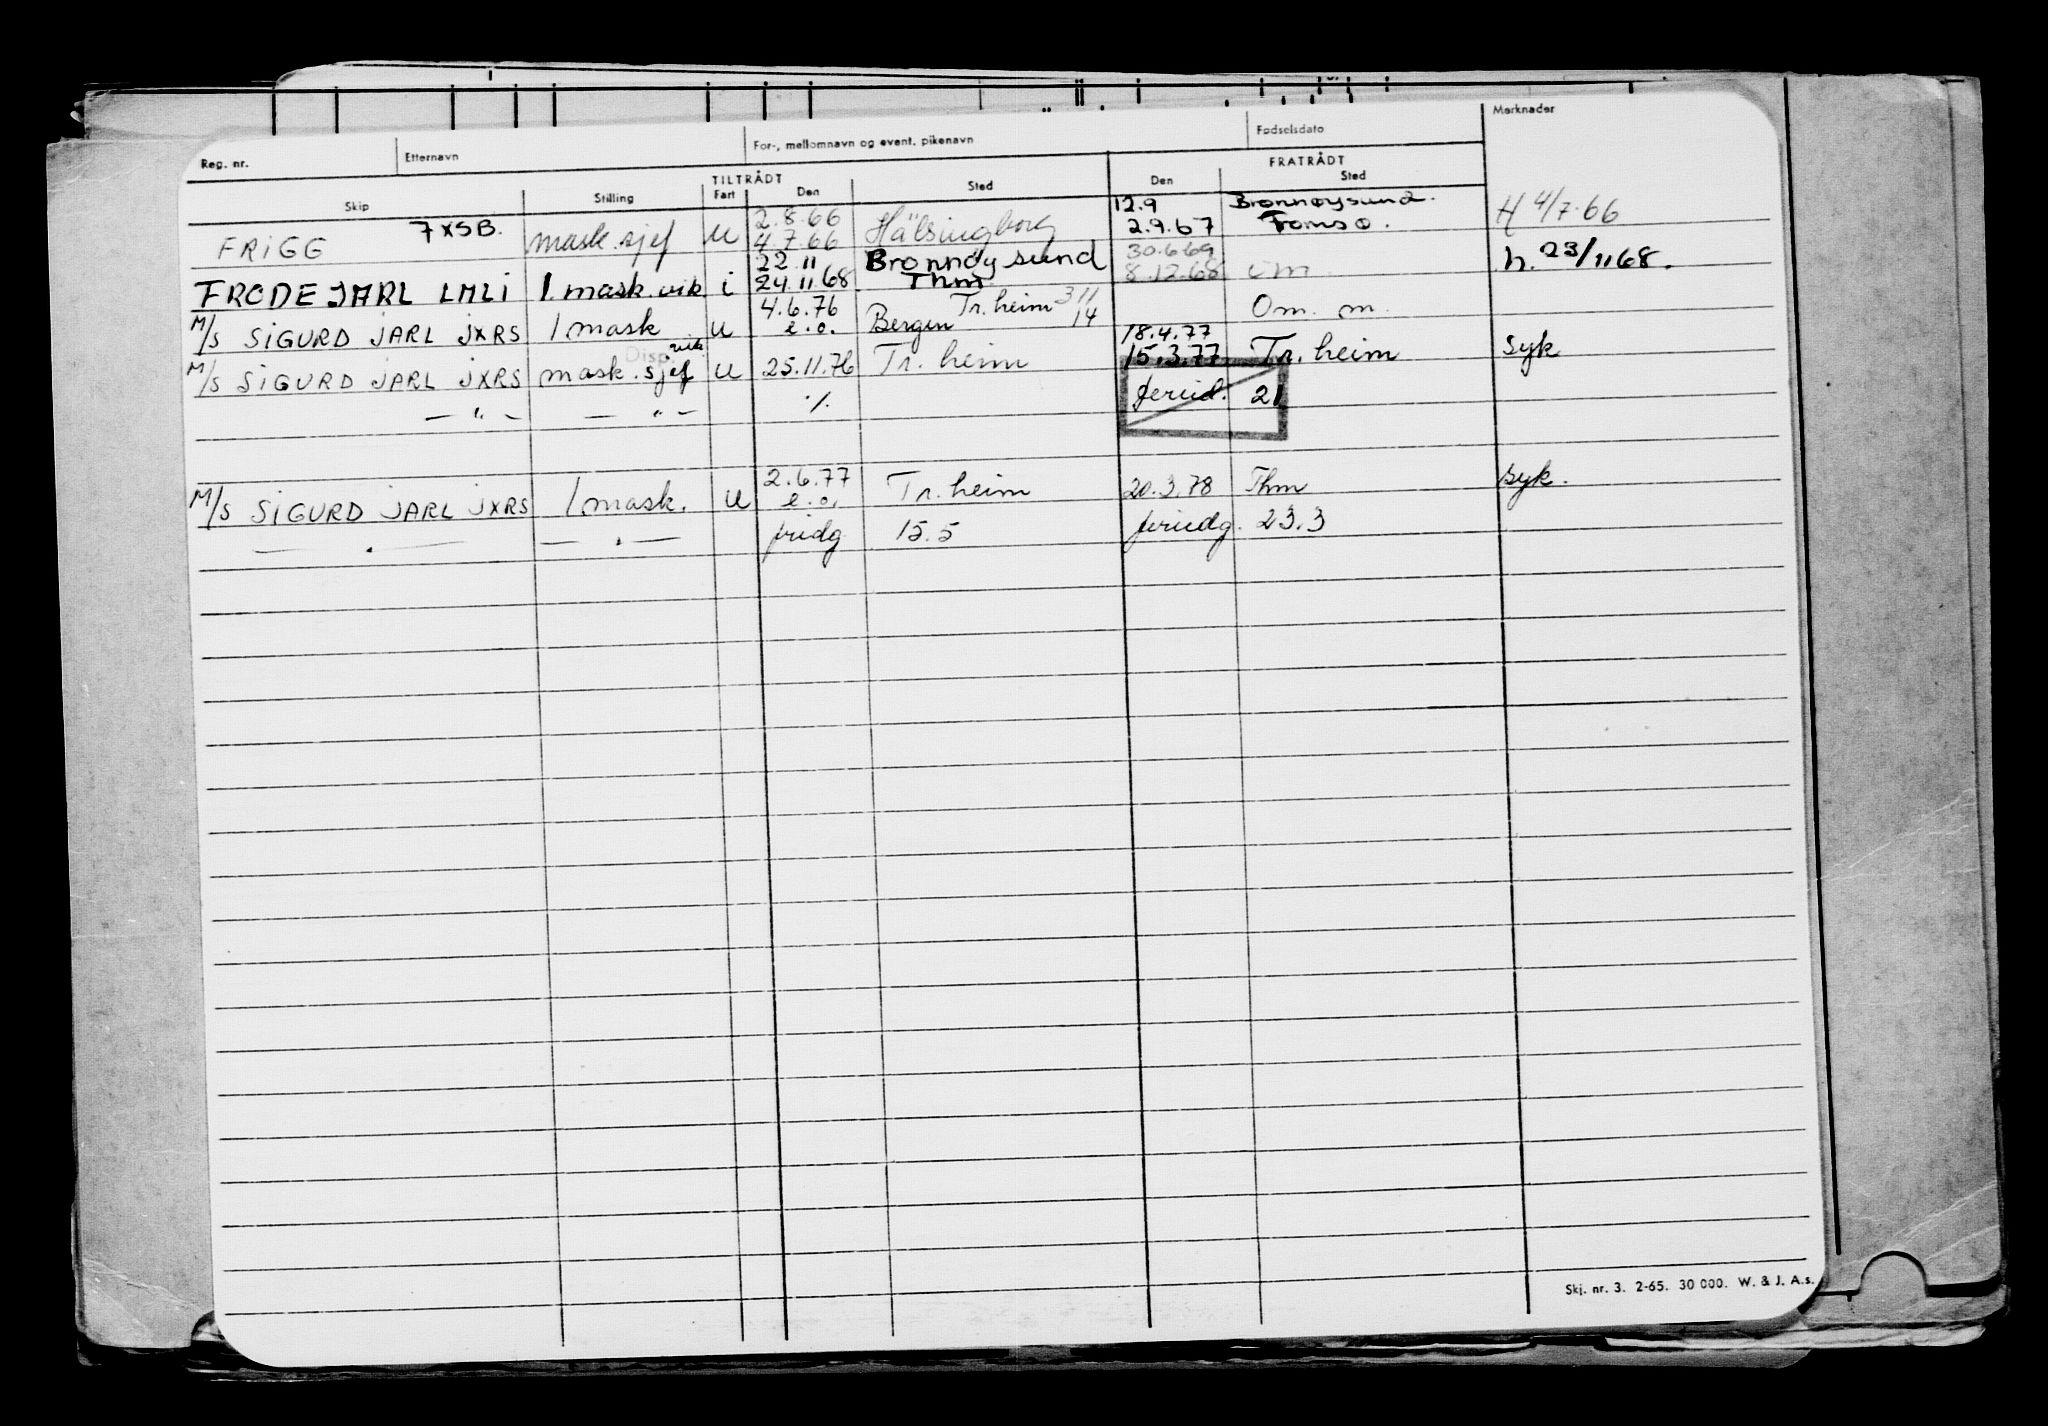 Reg. nr. Etternavn For-, mellomnavn og event. pikenavn Fødselsdato Merknader
TILTRÅDT FRATRÅDT
Skip Stilling Fart Den Sted Den Sted
2.8.66 12.9 Brønnøysund.
FRIGG 7XSB. mask.sjef u 4.7.66 Hälsingborg 2.9.67 Tomsø. H 4/7.66
22.11 Brønnøysund 30.6.69
FRODE JARL LMLI 1. mask.vik. i 24.11.68 Thm 8.12.68 um h. 23/1168.
4.6.76 Tr.heim 311
M/S SIGURD JARL JXRS 1 mask u e.o. Bergen 14 Om. m.
Disp. vik. 18.4.77
M/S SIGURD JARL JXRS mask.sjef u 25.11.76 Tr.heim 15.3.77 Tr.heim syk
— " — — " — ./. feriid. 21
2.6.77
M/S SIGURD JARL JXRS 1 mask. u e.o. Tr.heim 20.3.78 Thm syk.
— " — — " — fridg 15.5 feriedg. 23.3
Skj. nr. 3. 2-65. 30 000. W. & J. A.s.